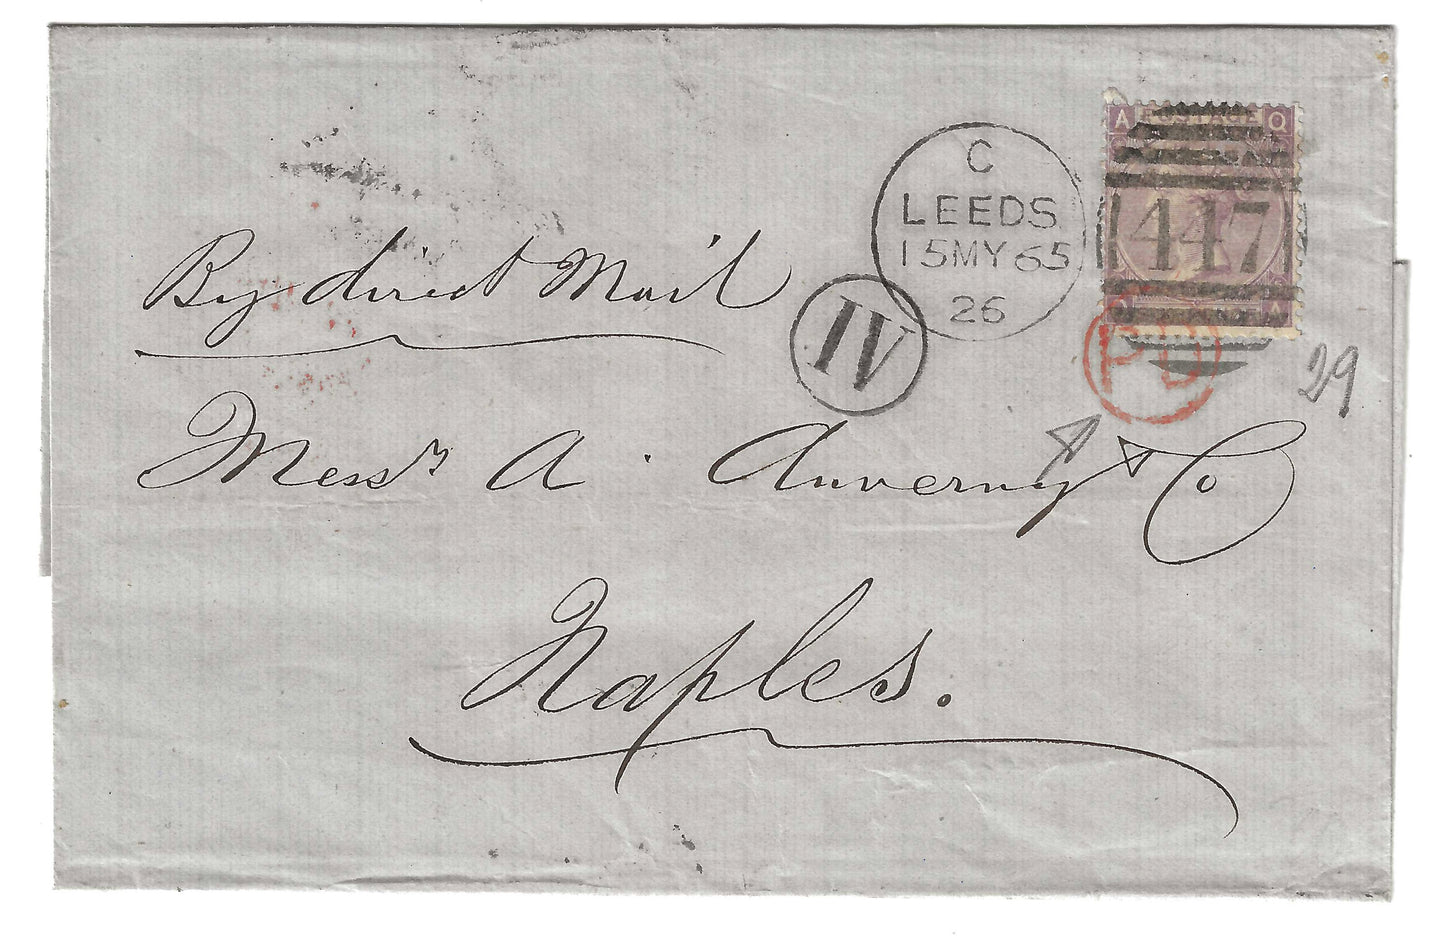 A POSTAGE Q
447
Q A
C
LEEDS
15MY65
26
By direct Mail
IV
PD
29
Mess^rs A. Auverny & Co
Naples.